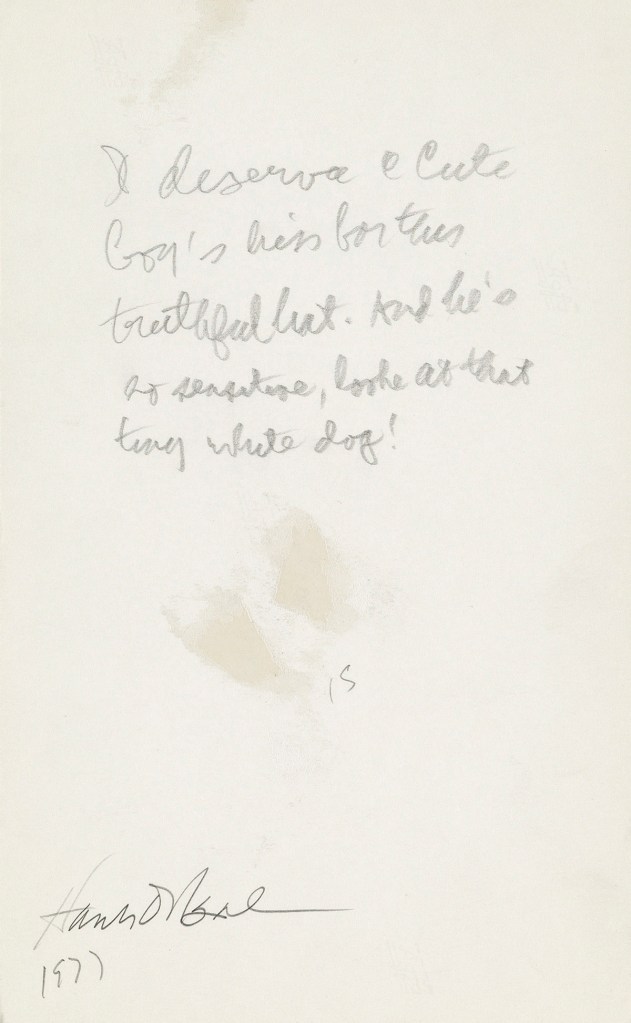 I deserve a Cute
Boy's kiss for this
truthful hat. And he's
so sensitive, look at that
tiny white dog!
15
Hank O'Neal
1977